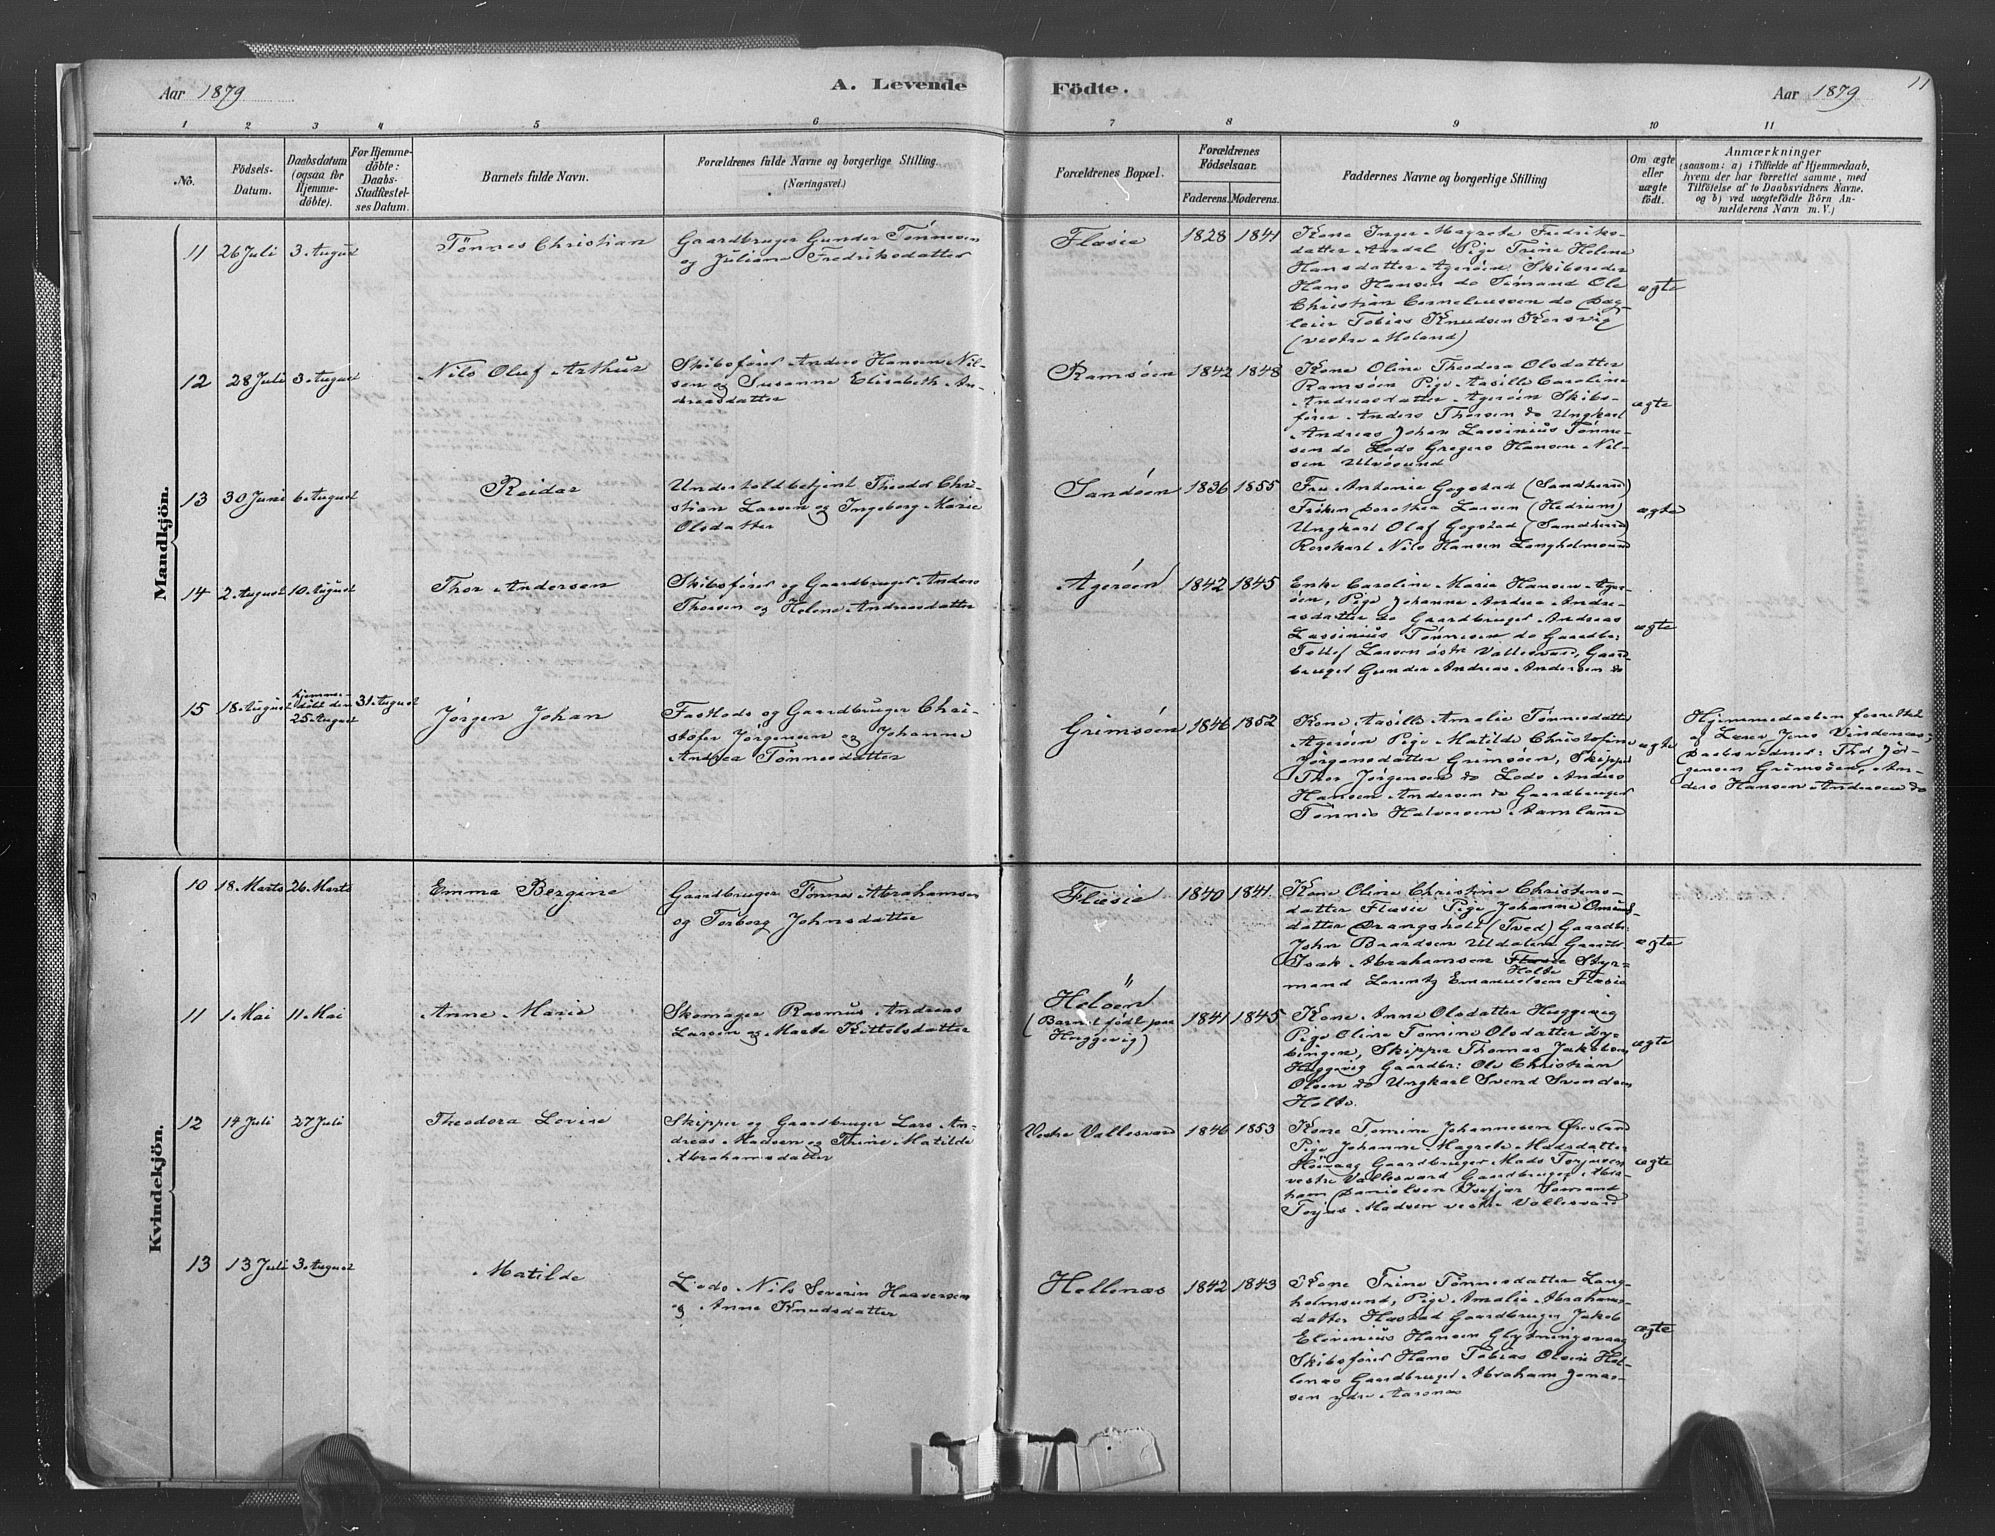 Aar 1879
A. Levende
Födte.
Aar 1879
11
1 2 3 4 5 6 7 8 9 10 11
No.
Födsels-
Datum.
Daabsdatum
(ogsaa for
Hjemme-
döbte).
For Hjemme-
döbte:
Daabs-
Stadfestel-
ses Datum.
Barnets fulde Navn.
Forældrenes fulde Navne og borgerlige Stilling.
(Næringsvei.)
Forældrenes Bopæl.
Forældrenes
Födselsaar.
Faderens. Moderens.
Faddernes Navne og borgerlige Stilling
Om ægte
eller
uægte
födt.
Anmærkninger
(saasom: a) i Tilfælde af Hjemmedaab,
hvem der har forrettet samme, med
Tilföielse af to Daabsvidners Navne.
og b) ved uægtefödte Börn An-
melderens Navn m. V.)
Mandkjön.
11 26 Juli 3 August
Tönnes Christian
Gaardbruger Gunder Tönnesen
og Juliane Fredriksdatter
Flæsie
1828 1841
Kone Inger Magrete Fredriks-
datter Aardal Pige Trine Helene
Hansdatter Ageröen Skibsreder
Hans Hansen do Sömand Ole
Christian Corneliussen do Dag-
leier Tobias Knudsen Korsvig
(vestre Moland)
ægte
12 28 Juli 3 August
Nils Oluf Arthur
Skibsförer Anders Hansen Nil-
sen og Susanne Elisabeth An-
dreasdatter
Ramsöen
1842 1848
Kone Oline Theodora Olsdatter
Ramsöen Pige Aasille Caroline
Andreasdatter Ageröen Skibs-
förer Anders Thorsen do Ungkarl
Andreas Johan Lassinius Tönne-
sen do Lods Gregers Hansen Nil-
sen Ulvösund
ægte
13 30 Juni 6 August
Reidar
Undertoldbetjent Theodor Chri-
stian Larsen og Ingeborg Marie
Olsdatter
Sandöen
1836 1855
Fru Antonie Gogstad (Sandherred)
Fröken Dorothea Larsen (Hedrum)
Ungkarl Olaf Gogstad (Sandherred)
Rorskarl Nils Hansen Langholmsund
ægte
14 2 August 10 August
Thor Andersen
Skibsförer og Gaardbruger Anders
Thorsen og Helene Andreasdatter
Ageröen
1842 1845
Enke Caroline Marie Hansen Age-
röen, Pige Johanne Andrea Andre-
asdatter do Gaardbruger Andreas
Lassinius Tönnesen do Gaardbr:
Tollef Larsen östre Vallesværd, Gaard-
bruger Gunder Andreas Andersen do
ægte
15 18 August
Hjemme-
döbt den
25 August
31 August
Jörgen Johan
Fastlods og Gaardbruger Chri-
stofer Jörgensen og Johanne
Andrea Tönnesdatter
Grimsöen
1846 1852
Kone Aasille Amalie Tönnesdatter
Ageröen Pige Matilde Christofine
Jörgensdatter Grimsöen, Skipper
Thor Jörgensen do Lods Anders
Hansen Andersen do Gaardbruger
Tönnes Halvorsen Aamland
ægte
Hjemmedaaben forrettet
af Lærer Jens Vindenæs;
Daabsvidner: Thor Jör-
gensen Grimsöen, An-
ders Hansen Andersen do
Kvindekjön.
10 18 Marts 26 Marts
Emma Bergine
Gaardbruger Tönnes Abrahamsen
og Torborg Johnsdatter
Flæsie
1840 1841
Kone Oline Christine Christens-
datter Flæsie Pige Johanne Omunds-
datter Drangsholt (Tved) Gaardbr:
John Braardsen Uldalen Gaardbr.
Isak Abrahamsen Flæsie Styr-
Holte
mand Lorentz Emanuelsen Flæsie
ægte
11 1 Mai 11 Mai
Anne Marie
Skomager Rasmus Andreas
Larsen og Marte Kittelsdatter
Helöen
(Barnet födt paa
Hæggevig)
1841 1845
Kone Anne Olsdatter Hæggevig
Pige Oline Tomine Olsdatter Dy-
bingen, Skipper Thomas Jakobsen
Hæggevig Gaardbr: Ole Christian
Olsen do Ungkarl Svend Svendsen
Holte.
ægte
12 14 Juli 27 Juli
Theodora Lovise
Skipper og Gaardbruger Lars An-
dreas Madsen og Thrine Matilde
Abrahamsdatter
Vestre Vallesværd
1846 1853
Kone Tomine Johannesen Öresland
Pige Johanne Magrete Madsdatter
Höivaag Gaardbruger Mads Torjusen
vestre Vallesværd Gaardbruger Abra-
ham Danielsen Isefjær Sömand
Torjus Madsen vestre Vallesværd
ægte
13 13 Juli 3 August
Matilde
Lods Nils Severin Haaversen
og Anne Knudsdatter
Hellenæs
1842 1843
Kone Trine Tönnesdatter Lang-
holmsund, Pige Amalie Abrahams-
datter Hæstad Gaardbruger Jakob
Elivinius Hansen Glytningsvaag
Skibsförer Hans Tobias Olsen Hel-
lenæs Gaardbruger Abraham Jonas-
sen ydre Aarsnæs
ægte